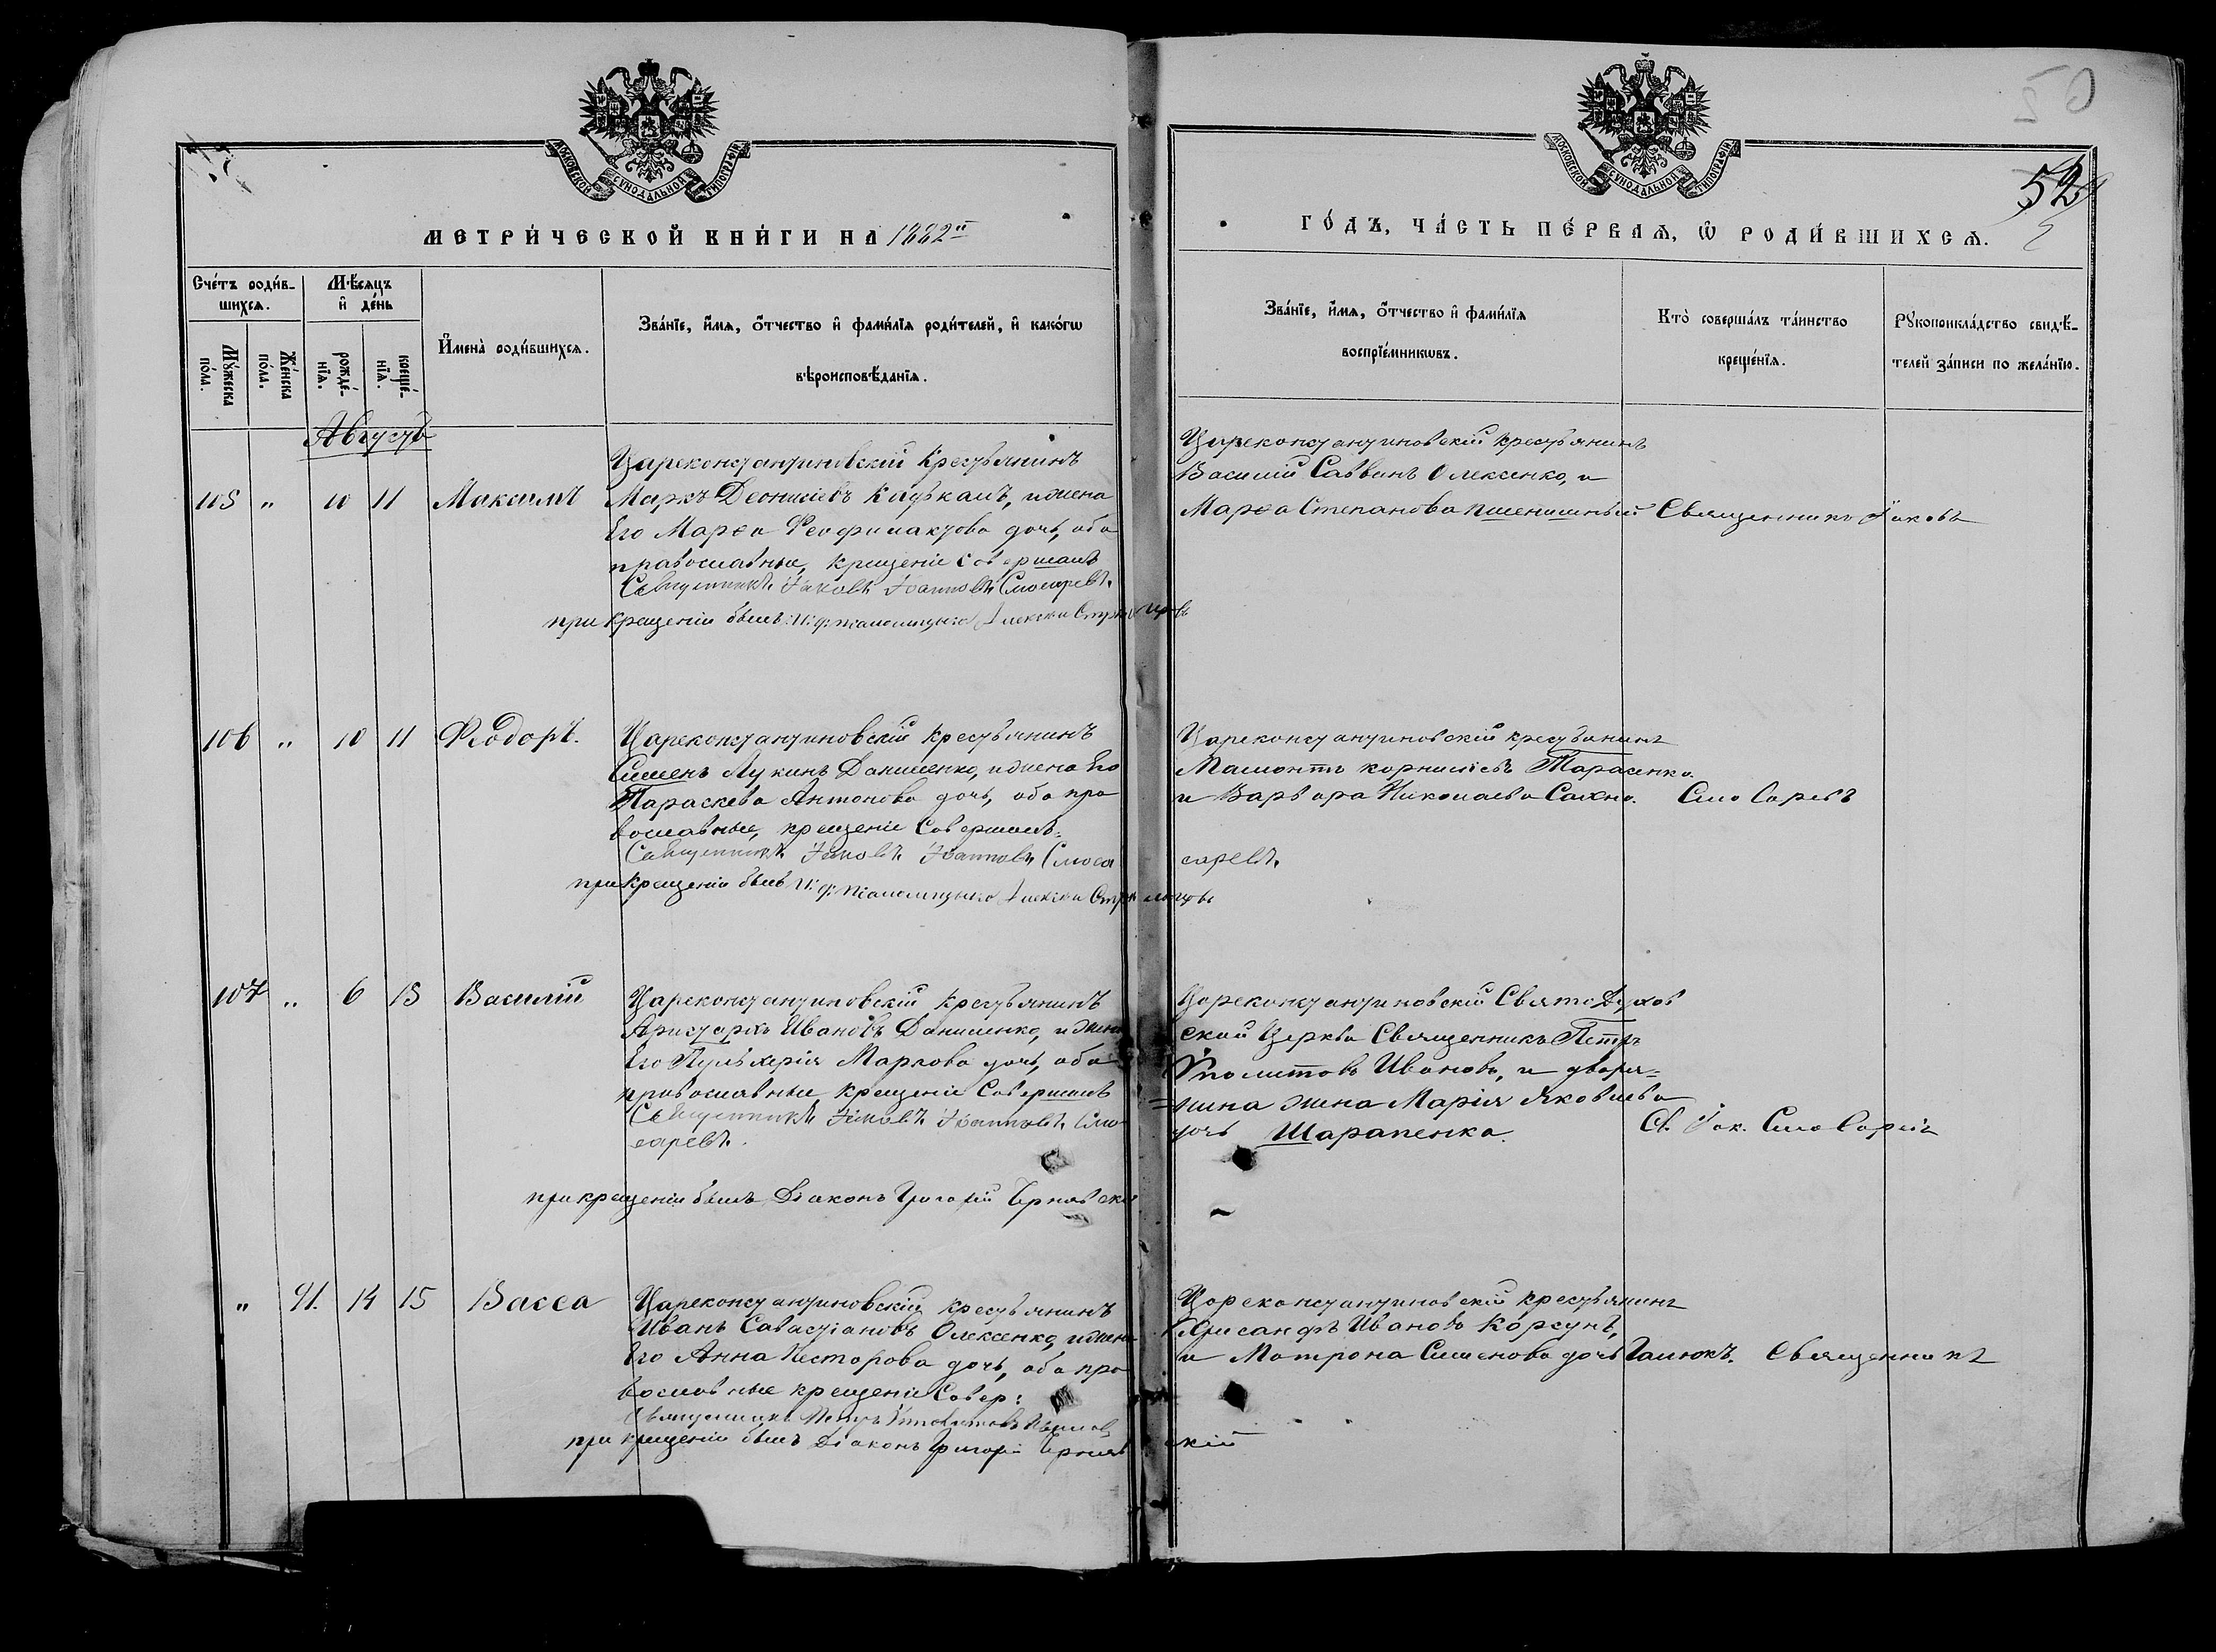 МОСКОВСКОЙ СѴНОДАЛЬНОЙ ТИПОГРАФІИ
МЕТРИ́ЧЕСКОЙ КНИ́ГИ НА 1882й
Сче́тъ роди́в-
шихся.
Мѣ́сяцъ
и҆ де́нь
Мꙋ́жеска
по́ла.
Же́нска
по́ла.
рожде́-
нїя.
креще́-
нїя.
И҆мена̀ роди́вшихся.
Зва́нїе, и҆́мя, ѻ҆́тчество и҆ фами́лїя роди́телей, и҆ како́гѡ
вѣроисповѣ́данїя.
Августъ
105 " 10 11 Максимъ
Цареконстантиновскій Крестьянинъ
Маркъ Деонисіевъ Кафканъ, и жена
Его Марѳа Феофилактова дочь, оба
православные, крещеніе совершалъ
Священникъ Іаковъ Іоанновъ Слюсаревъ.
при крещеніи былъ И: д: псаломщика Алексѣй Стрѣльцовъ
106 " 10 11 Феодоръ.
Цареконстантиновскій крестьянинъ
Сименъ Лукинъ Даниленко, и жена Его
Параскева Антонова дочь, оба пра
вославные, крещеніе Совершалъ:
Священникъ Іаковъ Іоанновъ Слюса
ревъ.
при крещеніи былъ И: д: псаломщика Алексѣй Стрѣльцовъ
107 " 6 13 Василій
Цареконстантиновскій крестьянинъ
Аристархъ Ивановъ Даниленко, и жена
Его Пульхерія Маркова дочь, оба
православные, крещеніе Совершалъ
Священникъ Іаковъ Іоанновъ Слю
саревъ.
при крещеніи былъ Діаконъ Григорій Чернявскій
" 91. 14 15 Васса
Цареконстантиновскій крестьянинъ
Иванъ Савастіановъ Олексенко, и жена
Его Анна Несторова дочь, оба пра
вославные крещеніе Совер:
Священникъ Петръ Ѵполитовъ Ивановъ
при крещеніи былъ Діаконъ Григорій Чернявскій
52
МОСКОВСКОЙ СѴНОДАЛЬНОЙ ТИПОГРАФІИ
ГО́ДЪ, ЧА́СТЬ ПЕ́РВАЯ, Ѽ РОДИ́ВШИХСЯ.
Зва́нїе, и҆́мя, ѻ҆́тчество и҆ фами́лїя
воспрїе́мникѡвъ.
Кто̀ соверша́лъ та́инство
креще́нїя.
Рꙋкоприкла́дство свидѣ́-
телей за́писи по жела́нїю.
Цареконстантиновскій крестьянинъ
Василій Саввинъ Олексенко, и
Марѳа Степанова Пшенишный Священникъ Іаковъ
Цареконстантиновскій крестьянинъ
Мамонтъ Корниліевъ Тарасенко.
и Варвара Николаева Сахно. Слюсаревъ
Цареконстантиновскій Свято Духов
ской Церкви Священникъ Петръ
Ѵполитовъ Ивановъ, и дворя=
=нина жена Марія Яковлева
дочь Шарапенко. Св. Іак. Слюсаревъ
Цареконстантиновскій крестьянинъ
Хрисанфъ Ивановъ Корсунъ,
и Матрона Сименова дочь Галюкъ. Священникъ